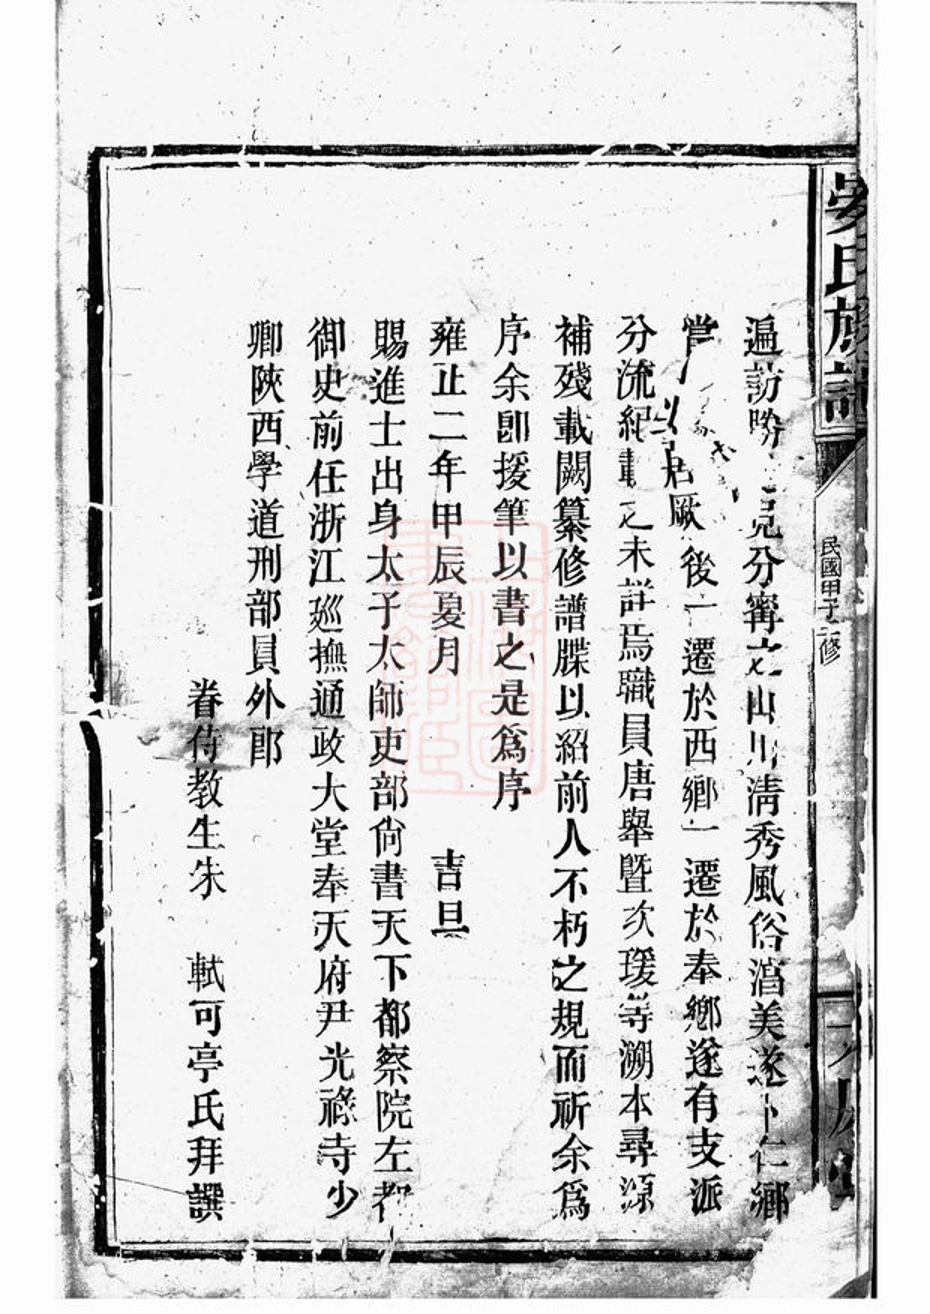 氏族譜
民國甲子三修
遍訪勝克分甯之山川清秀風俗淳美遂卜仁鄉
當以居厥後一遷於西鄉一遷於奉鄉遂有支派
分流紀載之未詳焉職員唐舉暨次瑗等溯本尋源
補殘載闕纂修譜牒以紹前人不朽之規而祈余爲
序余卽援筆以書之是爲序
雍正二年甲辰夏月 吉旦
賜進士出身太子太師吏部尙書天下都察院左都
御史前任浙江廵撫通政大堂奉天府尹光祿寺少
卿陝西學道刑部員外郎
眷侍教生朱 軾可亭氏拜譔